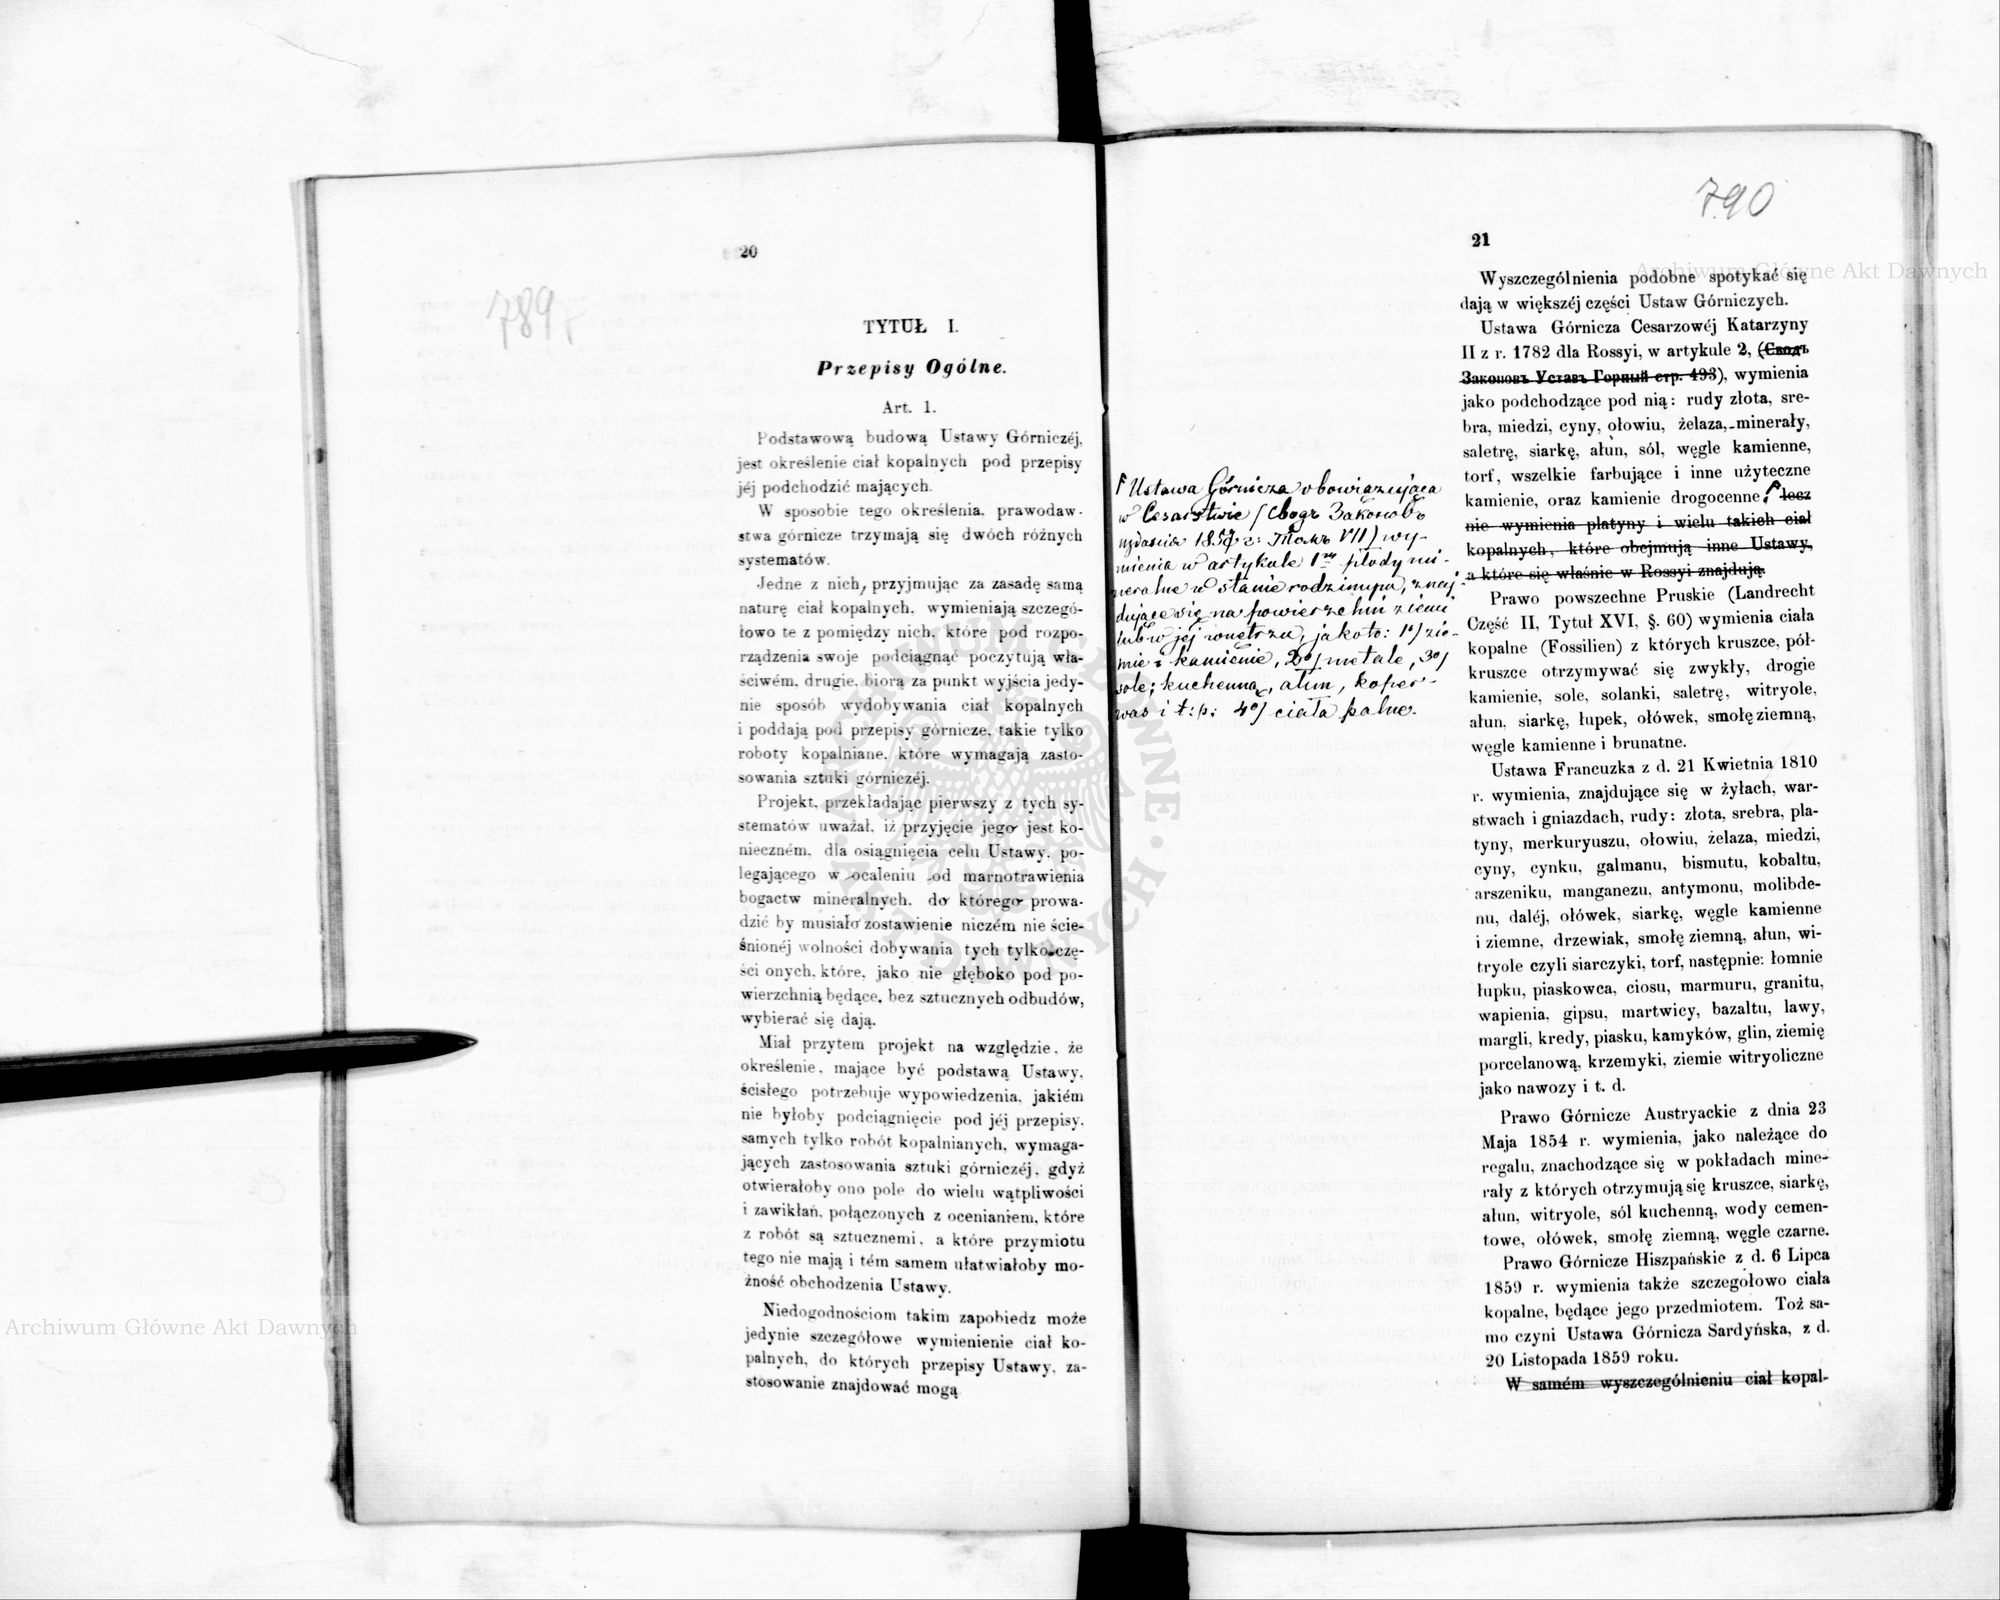 20
789
TYTUŁ I.
Przepisy Ogólne.
Art. 1.
Podstawową budową Ustawy Górniczéj,
jest określenie ciał kopalnych pod przepisy
jéj podchodzić mających.
W sposobie tego określenia, prawodaw-
stwa górnicze trzymają się dwóch różnych
systematów.
Jedne z nich, przyjmując za zasadę samą
naturę ciał kopalnych, wymieniają szczegó-
łowo te z pomiędzy nich, które pod rozpo-
rządzenia swoje podciągnąć poczytują wła-
ściwém, drugie, biorą za punkt wyjścia jedy-
nie sposób wydobywania ciał kopalnych
i poddają pod przepisy górnicze, takie tylko
roboty kopalniane, które wymagają zasto-
sowania sztuki górniczéj.
Projekt, przekładając pierwszy z tych sy-
stematów uważał, iż przyjęcie jego jest ko-
nieczném, dla osiągnięcia celu Ustawy, po-
legającego w ocaleniu od marnotrawienia
bogactw mineralnych, do którego prowa-
dzić by musiało zostawienie niczém nie ście-
śnionéj wolności dobywania tych tylko czę-
ści onych, które, jako nie głęboko pod po-
wierzchnią będące, bez sztucznych odbudów,
wybierać się dają.
Miał przytem projekt na względzie, że
określenie, mające być podstawą Ustawy,
ścisłego potrzebuje wypowiedzenia, jakiém
nie byłoby podciągnięcie pod jéj przepisy,
samych tylko robót kopalnianych, wymaga-
jących zastosowania sztuki górniczéj, gdyż
otwierałoby ono pole do wielu wątpliwości
i zawikłań, połączonych z ocenianiem, które
z robót są sztucznemi, a które przymiotu
tego nie mają i tém samem ułatwiałoby mo-
żność obchodzenia Ustawy.
Niedogodnościom takim zapobiedz może
jedynie szczegółowe wymienienie ciał ko-
palnych, do których przepisy Ustawy, za-
stosowanie znajdować mogą
790
21
Wyszczególnienia podobne spotykać się
dają w większéj części Ustaw Górniczych.
Ustawa Górnicza Cesarzowéj Katarzyny
II z r. 1782 dla Rossyi, w artykule 2, (Сводъ
Законовъ Уставъ Горный стр. 493), wymienia
jako podchodzące pod nią: rudy złota, sre-
bra, miedzi, cyny, ołowiu, żelaza, minerały,
saletrę, siarkę, ałun, sól, węgle kamienne,
torf, wszelkie farbujące i inne użyteczne
kamienie, oraz kamienie drogocenne, lecz
nie wymienia platyny i wielu takich ciał
kopalnych, które obejmują inne Ustawy,
a które się właśnie w Rossyi znajdują.
Ustawa Górnicza obowiązująca
w Cesarstwie (Сводъ Законовъ
wydania 1857 r. Томъ VII) wy-
mienia w artykule 1ym płody mi-
neralne w stanie rodzimym, znaj-
dujące się na powierzchni ziemi
lub w jej wnętrzu, jako to: 1o/ zie-
mie i kamienie, 2o/ metale, 3o/
sole; kuchenną, ałun, koper-
was i t:p: 4o/ ciała palne.
Prawo powszechne Pruskie (Landrecht
Część II, Tytuł XVI, §. 60) wymienia ciała
kopalne (Fossilien) z których kruszce, pół-
kruszce otrzymywać się zwykły, drogie
kamienie, sole, solanki, saletrę, witryole,
ałun, siarkę, łupek, ołówek, smołę ziemną,
węgle kamienne i brunatne.
Ustawa Francuzka z d. 21 Kwietnia 1810
r. wymienia, znajdujące się w żyłach, war-
stwach i gniazdach, rudy: złota, srebra, pla-
tyny, merkuryuszu, ołowiu, żelaza, miedzi,
cyny, cynku, galmanu, bismutu, kobaltu,
arszeniku, manganezu, antymonu, molibde-
nu, daléj, ołówek, siarkę, węgle kamienne
i ziemne, drzewiak, smołę ziemną, ałun, wi-
tryole czyli siarczyki, torf, następnie: łomnie
łupku, piaskowca, ciosu, marmuru, granitu,
wapienia, gipsu, martwicy, bazaltu, lawy,
margli, kredy, piasku, kamyków, glin, ziemię
porcelanową, krzemyki, ziemie witryoliczne
jako nawozy i t. d.
Prawo Górnicze Austryackie z dnia 23
Maja 1854 r. wymienia, jako należące do
regalu, znachodzące się w pokładach mine-
rały z których otrzymują się kruszce, siarkę,
ałun, witryole, sól kuchenną, wody cemen-
towe, ołówek, smołę ziemną, węgle czarne.
Prawo Górnicze Hiszpańskie z d. 6 Lipca
1859 r. wymienia także szczegółowo ciała
kopalne, będące jego przedmiotem. Toż sa-
mo czyni Ustawa Górnicza Sardyńska, z d.
20 Listopada 1859 roku.
W samém wyszczególnieniu ciał kopal-
Archiwum Główne Akt Dawnych
Archiwum Główne Akt Dawnych
ARCHIWUM GŁÓWNE AKT DAWNYCH